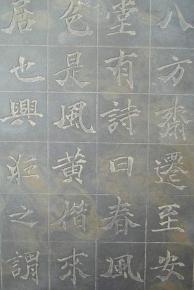 八方齋遷至安
堂有詩曰春風
色是風黃楷來
居也興之謂